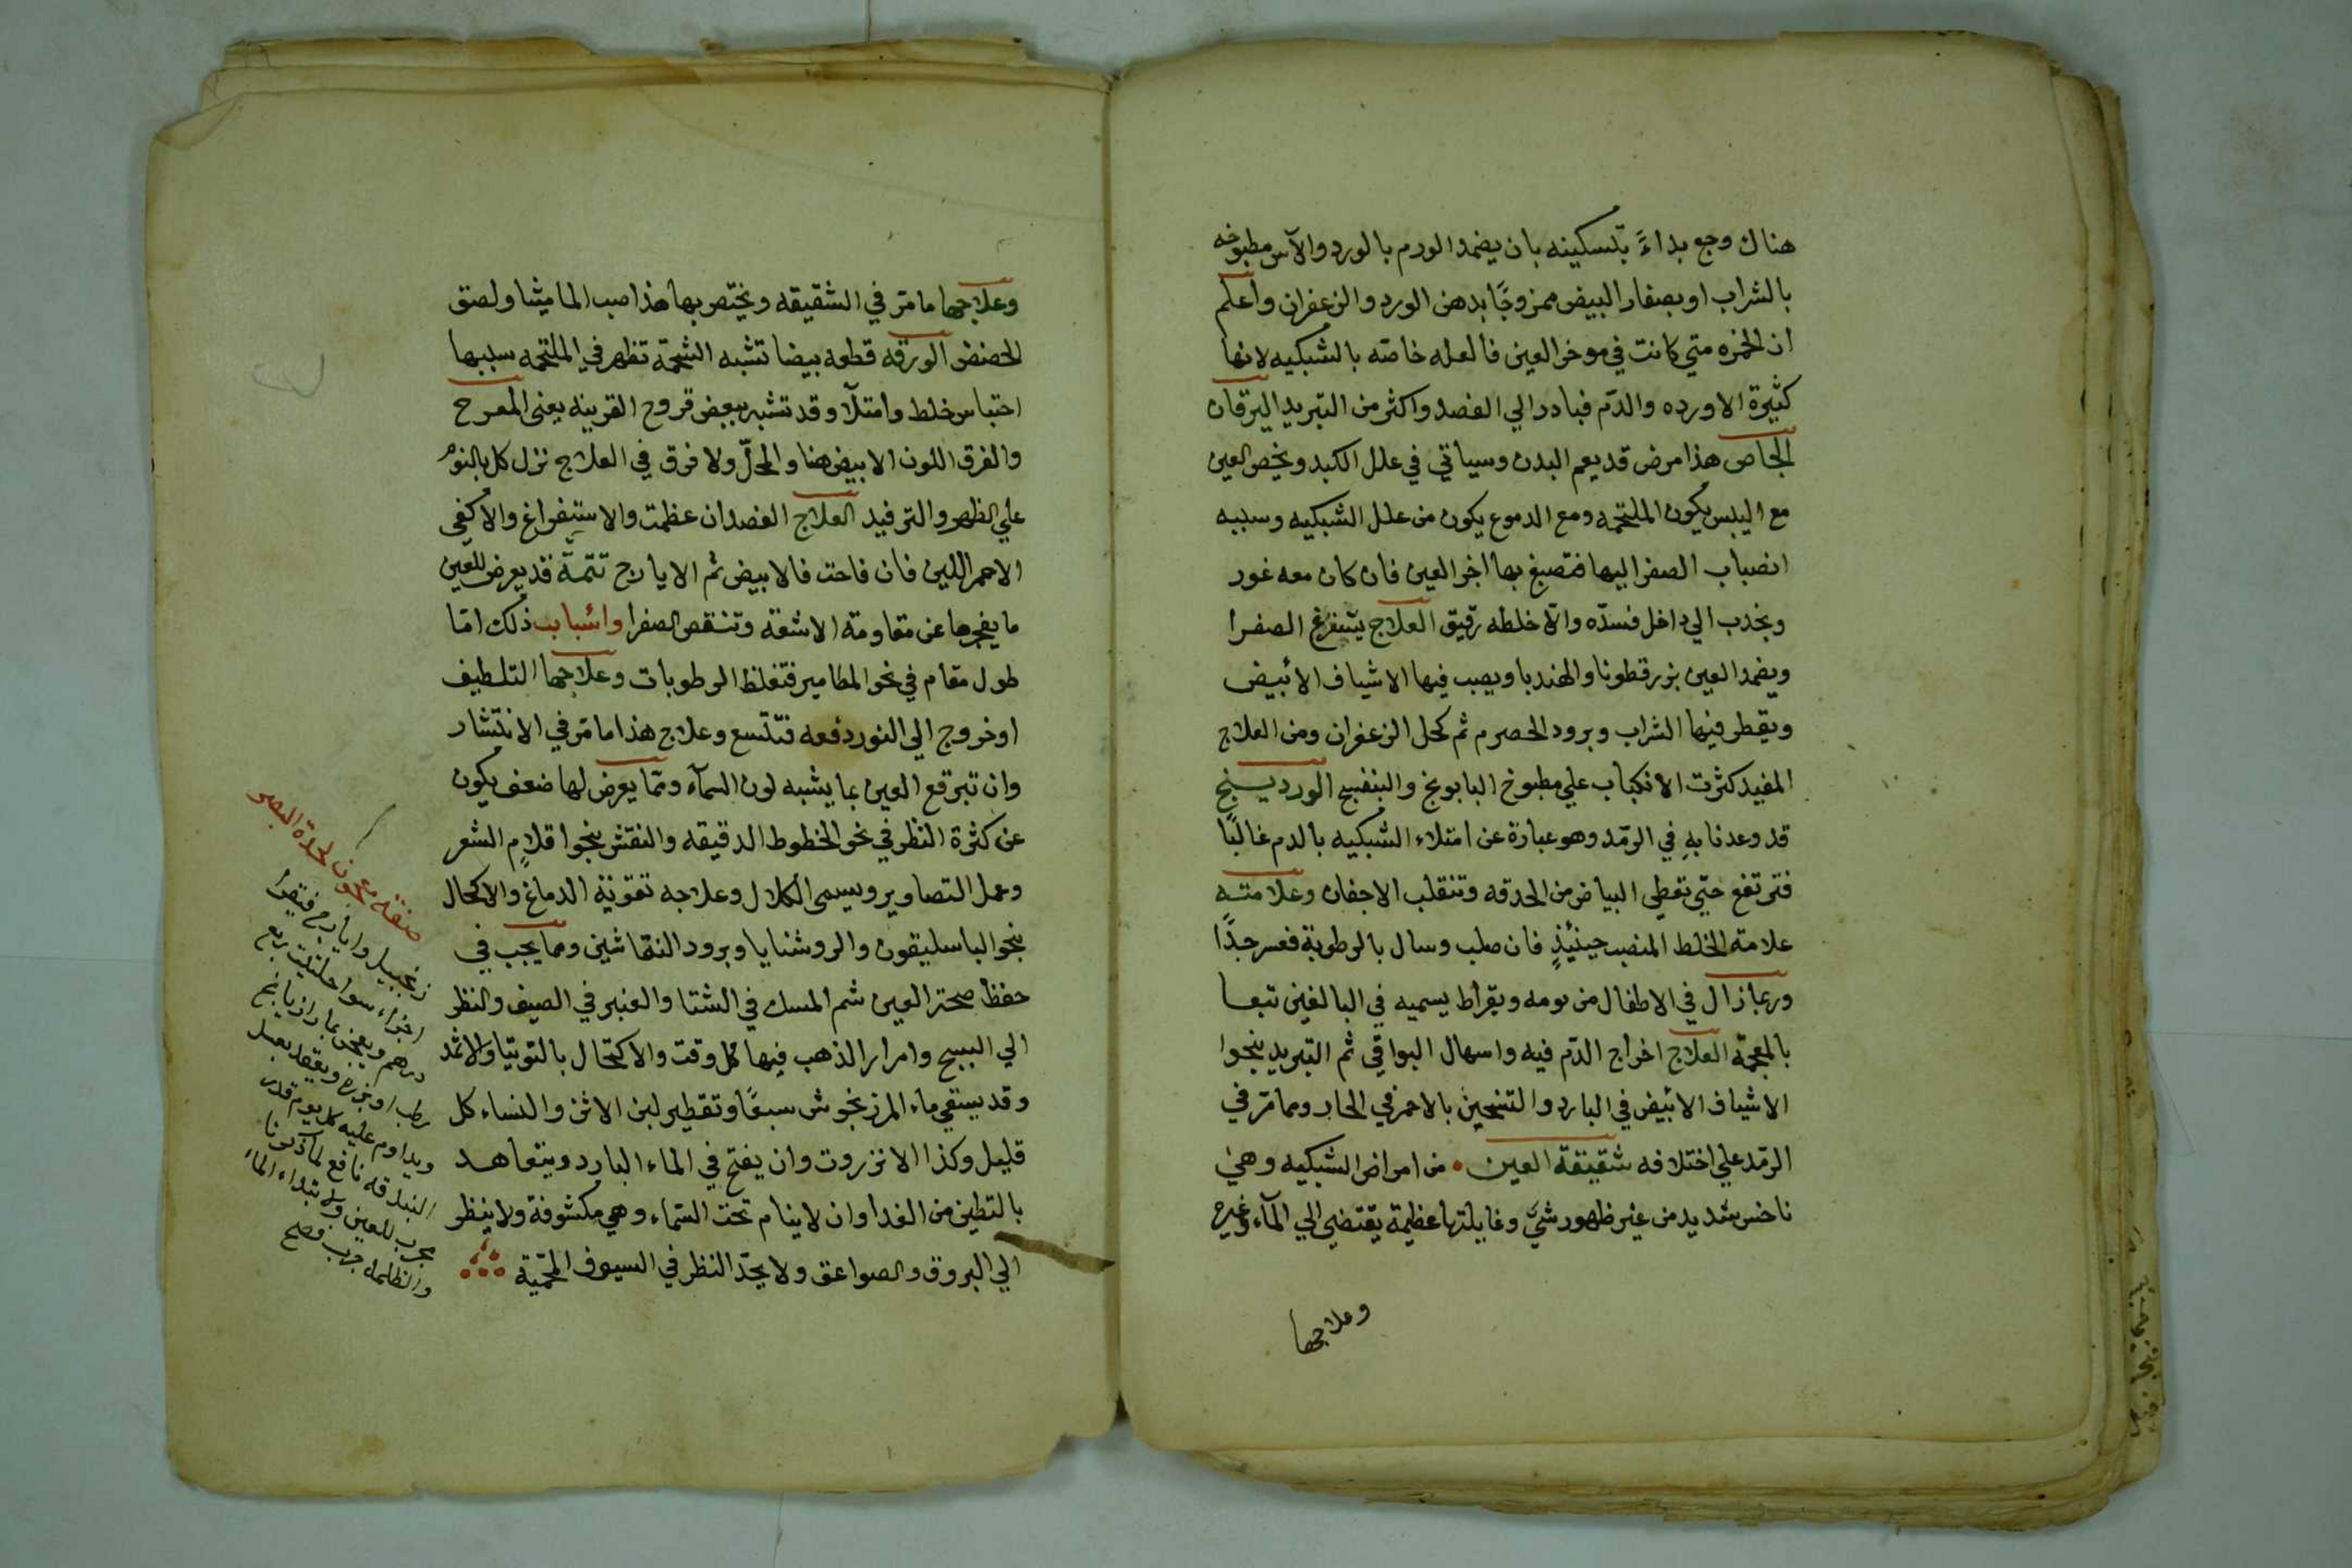 هناك وجع بداءً بتسكينه بان يضمد الورم بالورد والآس مطبوخه
بالشراب او بصفار البيض ممزوجًا بدهن الورد والزعفران واعلم
ان الحمره متي كانت في موخر العين فالعله خاصّه بالشبكيه لانها
كثيرة الاورده والدّم فبادر الي الفصد واكثر من التبريد اليرقان
الخاص هذا مرض قد يعم البدن وسياتي في علل الكبد ويخص العين
مع اليبس يكون الملتحمه ومع الدموع يكون من علل الشبكيه وسببه
انصباب الصفرا اليها فتصبغ بها اجزا العين فان كان معه غور
وبجذب الي داخل فسدّه والّا خلطه رقيق العلاج يستفرغ الصفرا
ويضمد العين بزرقطونا والهندبا ويصب فيها الاشياف الابيض
ويقطر فيها الشراب وبرود الحصرم ثم كحل الزعفران ومن العلاج
المفيد كثرت الانكباب علي مطبوخ البابونج والبنفسج الوردينج
قد وعدنا بهِ في الرمّد وهو عبارة عن امتلاء الشبكيه بالدم غالبًا
فترتفع حتّي تغطي البياض من الحدقه وتنقلب الاجفان وعلامته
علامة الخلط المنصب حينئذٍ فان صلب وسال بالرطوبة فعسر جدًا
وربما زال في الاطفال من يومه وبقراط يسميه في البالغين تبعا
بالمعجمّه العلاج اخراج الدّم فيه واسهال البواقي ثم التبريد بنحوا
الاشياف الابيض في البارد والتسخين بالاحمر في الحار ومما مرّ في
الرمّد علي اختلافه شقيقة العين • من امراض الشبكيه وهي
ناخس شديد من غير ظهور شيّ وغايلتها عظيمة يقتضي الي المآء وغيره
وعلاجها
وعلاجها ما مرّ في الشقيقه ويختص بها هذا صب الماميثا ولصق
الحضض الورقه قطعه بيضا تشبه الشحمّه تظهر في الملتحمه سببها
احتباس خلط وامتلآ وقد تشبه ببعض قروح القرنيه يعني المعرح
والفرق اللون الابيض هنا والمحلّ ولا فرق في العلاج نزل كل بالنوم
علي الظهر والترفيد العلاج الفصد ان عظمت والاستفراغ والاكفي
الاحمر اللين فان فاحت فالابيض ثم الايارج تتمّة قد يعرض للعين
ما يفجرها عن مقاومة الاشعه وتنقص الصفرا واسباب ذلك امّا
طول مقام في نحو المطامير فتغلظ الرطوبات وعلاجها التلطيف
او خروج الي النور دفعه فتتسع وعلاج هذا ما مرّ في الانتشار
وان تبرقع العين بما يشبه لون السمآء وممّا يعرض لها ضعف يكون
عن كثرة النظر في نحو الخطوط الدقيقه والنقش بنحوا قلام الشعر
وعمل التصاوير ويسمي الكلال وعلاجه تقوية الدماغ والاكحال
بنحو الباسليقون والروشنايا وبرود النقاشين ومما يجب في
حفظ صحة العين شم المسك في الشتا والعنبر في الصيف والنظر
الي السبج وامرار الذهب فيها كل وقت والاكتحال بالتوتيا والاثمد
وقد يسقي ماء المرزنجوش سبعًا وتقطير لبن الاتن والنساء كل
قليل وكذا الانزروت وان يفتح في الماء البارد ويتعاهد
بالتطين من الغدا وان لا ينام تحت السّماء وهي مكشوفة ولا ينظر
الي البروق والصواعق ولا يحدّ النظر في السيوف المحميّة
صفة معجون لحدة البصر
زنجبيل وايارج فيقرا
اجزاء سوا حلتيت ربع
درهم ويعجن بما رازيانج
رطب او بزره ويعقد بعسل
ويداوم عليه كل يوم قدر
البندقه نافع لما ذكرنا
مجرب للعين ولابتداء الماء
والظلمه جرب فصح